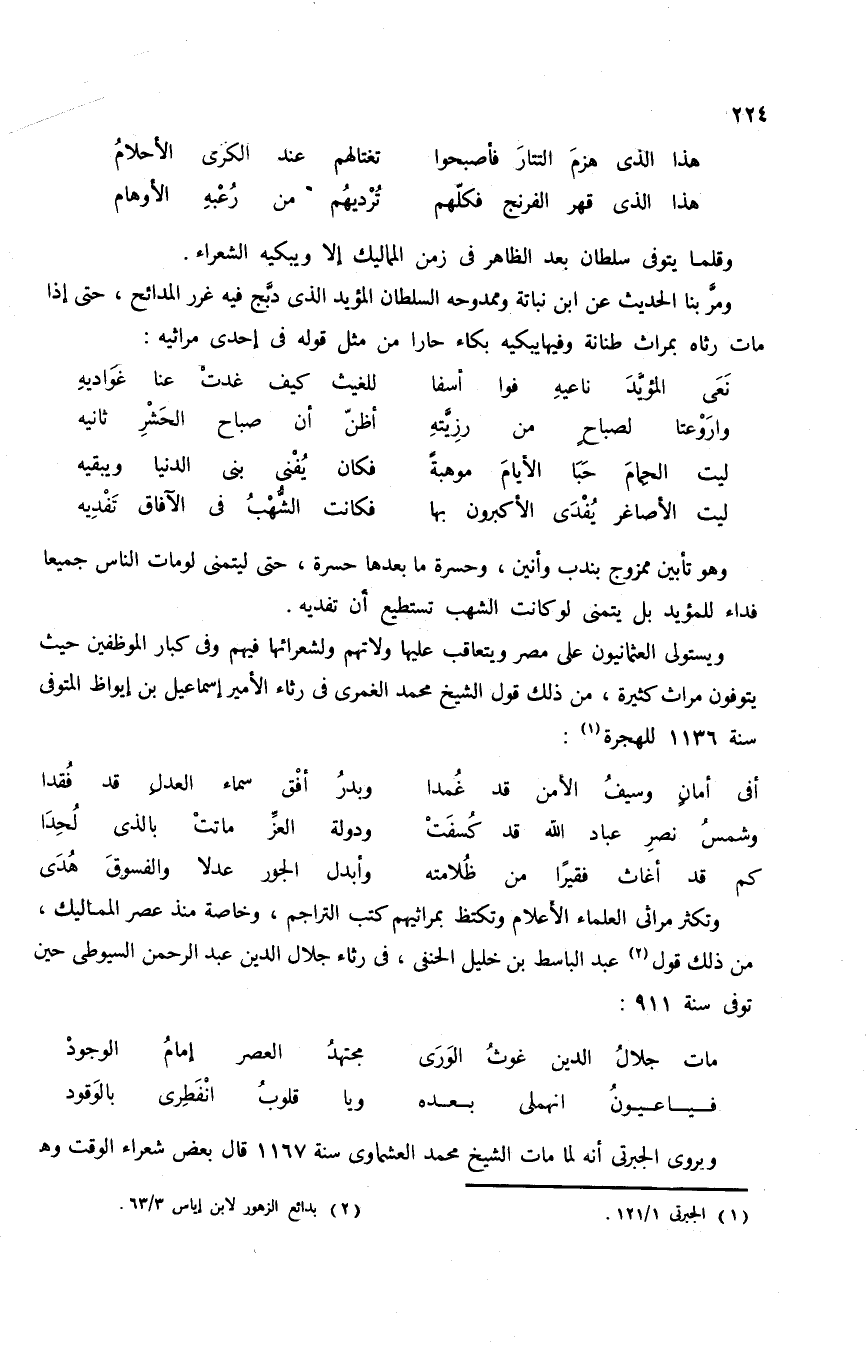 ٢٢٤
هذا الذى هزمَ التتارَ فأصبحوا تغتالهم عند الكرَى الأحلامُ
هذا الذى قهر الفرنج فكلّهم تُرْديهُم من رُعْبهِ الأوهام
وقلمـا يتوفى سلطان بعد الظاهر فى زمن المماليك إلا ويبكيه الشعراء .
ومرَّ بنا الحديث عن ابن نباتة وممدوحه السلطان المؤيد الذى دبَّج فيه غرر المدائح ، حتى إذا
مات رثاه بمراث طنانة وفيهايبكيه بكاء حارا من مثل قوله فى إحدى مراثيه :
نَعَى المؤيَّدَ ناعيهِ فوا أسفا للغيث كيف غدتْ عنا غَوَاديهِ
وارَوْعتا لصباحٍ من رزيَّتهِ أظنّ أن صباح الحَشْرِ ثانيه
ليت الحِمامَ حَبَا الأيامَ موهبةً فكان يُفْنى بنى الدنيا ويبقيه
ليت الأصاغر يُفْدَى الأكبرون بها فكانت الشُّهْبُ فى الآفاق تَفْدِيه
وهو تأبين ممزوج بندب وأنين ، وحسرة ما بعدها حسرة ، حتى ليتمنى لومات الناس جميعا
فداء للمؤيد بل يتمنى لوكانت الشهب تستطيع أن تفديه .
ويستولى العثمانيون على مصر ويتعاقب عليها ولاتهم ولشعرائها فيهم وفى كبار الموظفين حيث
يتوفون مراث كثيرة ، من ذلك قول الشيخ محمد الغمرى فى رثاء الأمير إسماعيل بن إيواظ المتوفى
سنة ١١٣٦ للهجرة(١) :
أفى أمانٍ وسيفُ الأمن قد غُمدا وبدرُ أفْق سماء العدلِ قد فُقدا
وشمسُ نصرِ عباد الله قد كُسفَتْ ودولة العزِّ ماتتْ بالذى لُحِدَا
كم قد أغاث فقيرًا من ظُلامته وأبدل الجور عدلا والفسوقَ هُدَى
وتكثر مراثى العلماء الأعلام وتكتظ بمراثيهم كتب التراجم ، وخاصة منذ عصر الممـاليك ،
من ذلك قول(٢) عبد الباسط بن خليل الحنفى ، فى رثاء جلال الدين عبد الرحمن السيوطى حين
توفى سنة ٩١١ :
مات جلالُ الدين غوثُ الوَرَى مجتهدُ العصر إمامُ الوجودْ
فـيـا عـيـونُ انهملى بـعـده ويا قلوبُ انْفَطِرى بالوَقود
ويروى الجبرتى أنه لما مات الشيخ محمد العشماوى سنة ١١٦٧ قال بعض شعراء الوقت وهـ
(١) الجبرتى ١٢١/١ . (٢) بدائع الزهور لابن إياس ٦٣/٣ .